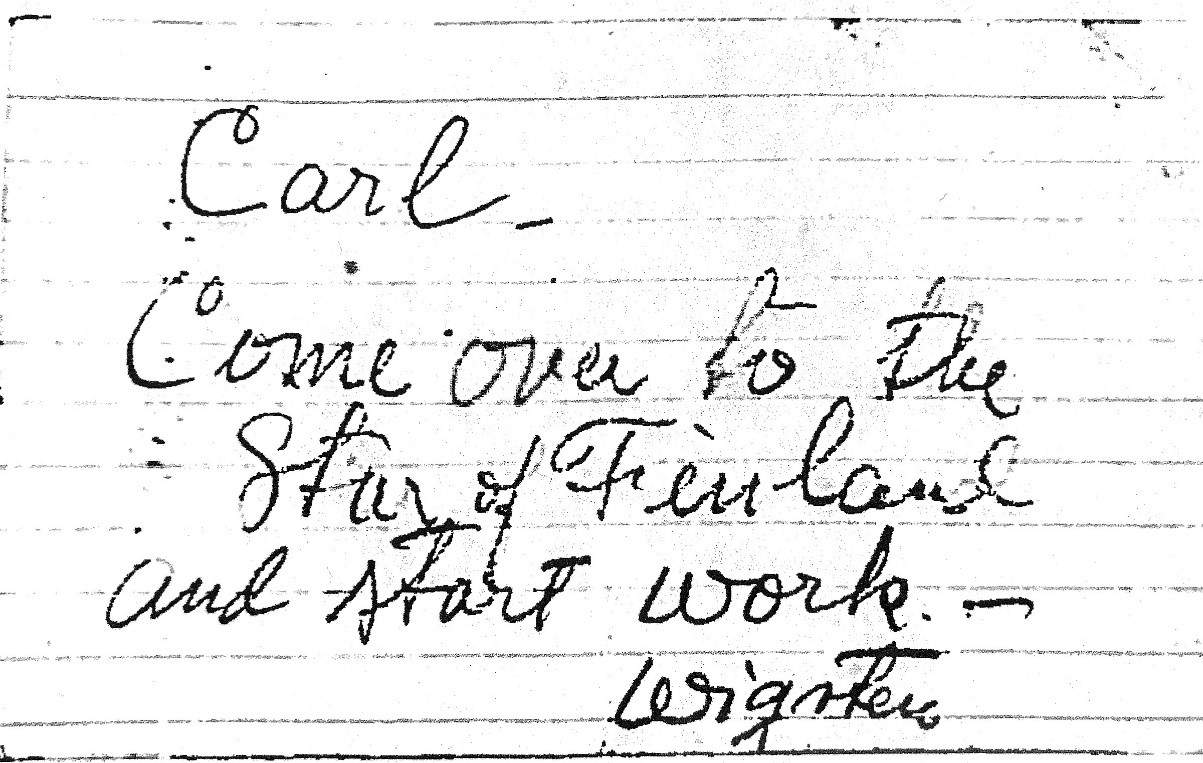 Carl —
Come over to the
Star of Finland
and start work. —